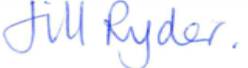 Jill Ryder.